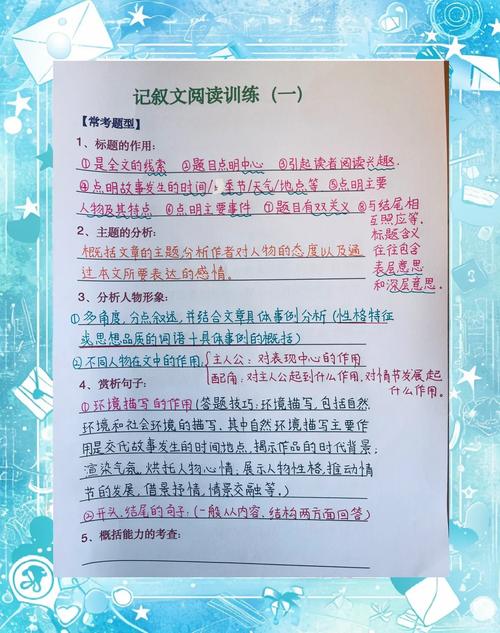 记叙文阅读训练（一）
【常考题型】
1、标题的作用：
①是全文的线索 ②题目点明中心 ③引起读者阅读兴趣.
④点明故事发生的时间/季节/天气/地点等 ⑤点明主要
人物及其特点 ⑥点明主要事件 ⑦题目有双关义 ⑧与结尾相
互照应等.
标题含义
往往包含
表层意思
和深层意思.
2、主题的分析：
概括文章的主题,分析作者对人物的态度以及通
过本文所要表达的感情。
3、分析人物形象：
①多角度,分点叙述,并结合文章具体事例分析(性格特征
或思想品质的词语+具体事例的概括)
②不同人物在文中的作用 主人公：对表现中心的作用
配角：对主人公起到什么作用,对情节发展起
什么作用.
4、赏析句子：
①环境描写的作用(答题技巧:环境描写,包括自然
环境和社会环境的描写,其中自然环境描写主要作
用是交代故事发生的时间地点,揭示作品的时代背景;
渲染气氛,烘托人物心情,展示人物性格,推动情
节的发展,借景抒情,情景交融等.)
②开头、结尾的句子：(一般从内容、结构两方面回答)
5、概括能力的考查：